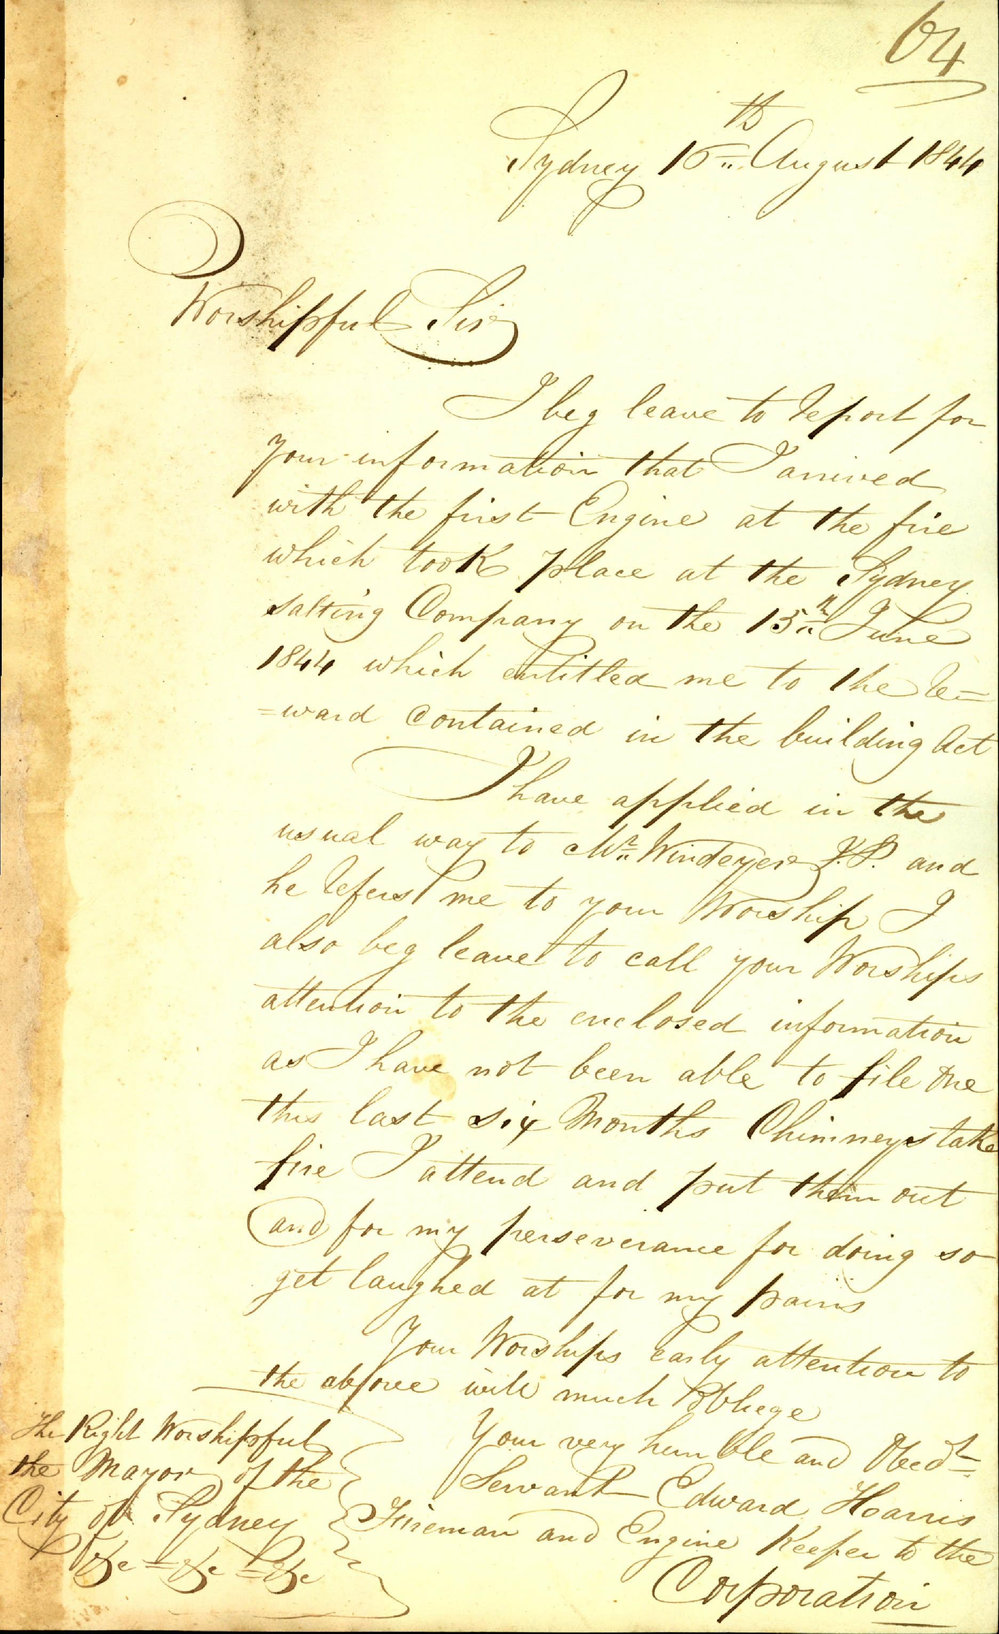 64
Sydney 16th August 1844
Worshipful Sir
I beg leave to report for
your information that I arrived
with the first Engine at the fire
which took place at the Sydney
salting Company on the 15th June
1844 which entitled me to the re=
=ward contained in the building Act
I have applied in the
usual way to Mr. Windeyer J.P. and
he refers me to your Worship I
also beg leave to call your Worships
attention to the enclosed information
as I have not been able to file one
this last six Months Chimneys take
fire I attend and put them out
and for my perseverance for doing so
get laughed at for my pains
Your Worships early attention to
the above will much Obliege
Your very humble and Obedt
Servant Edward Harris
Fireman and Engine Keeper to the
Corporation
The Right Worshipful
the Mayor of the
City of Sydney
&c = &c = &c